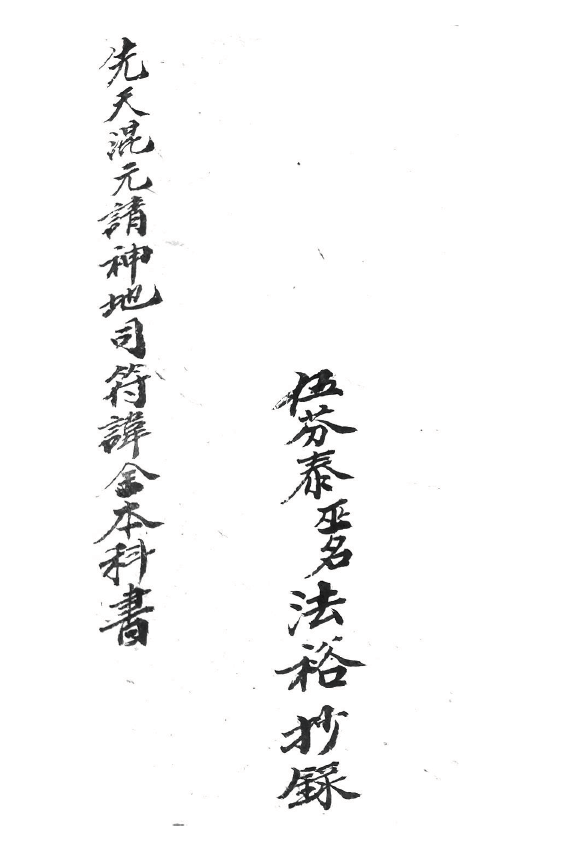 伍芬泰巫名法裕抄錄
先天混元請神地司符諱全本科書